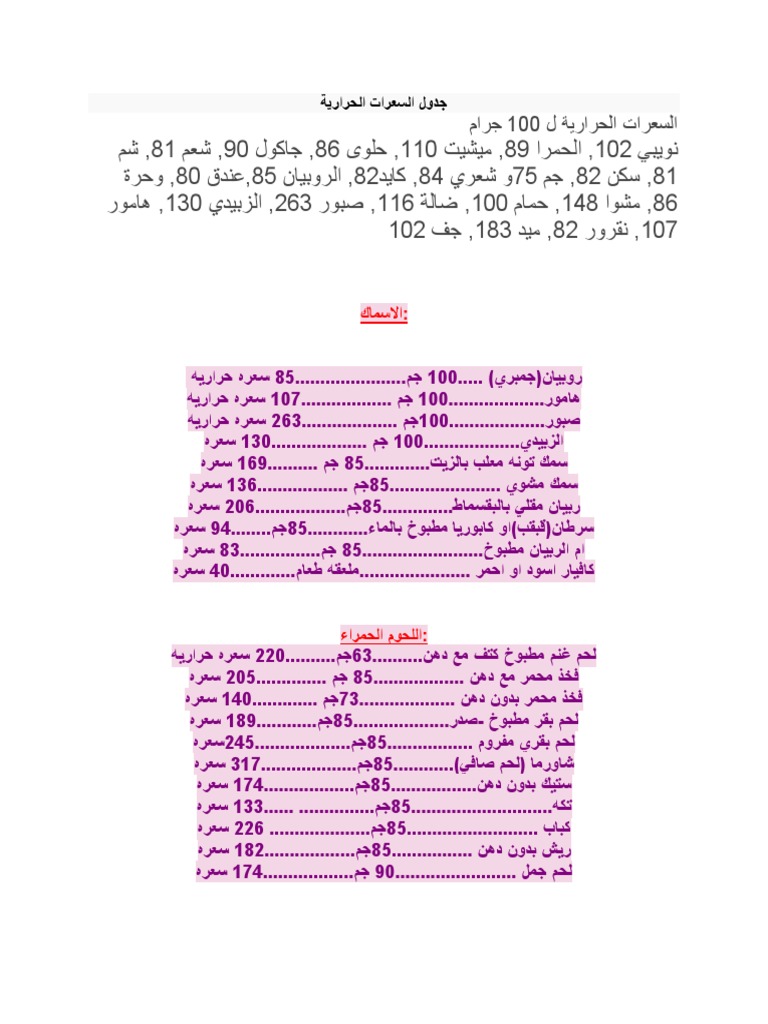 جدول السعرات الحرارية
السعرات الحرارية ل 100 جرام
نويبي 102, الحمرا 89, ميشيت 110, حلوى 86, جاكول 90, شعم 81, شم
81, سكن 82, جم 75و شعري 84, كايد82, الروبيان 85,عندق 80, وحرة
86, مشوا 148, حمام 100, ضالة 116, صبور 263, الزبيدي 130, هامور
107, نقرور 82, ميد 183, جف 102
الاسماك:
روبيان(جمبري) .....100 جم......................85 سعره حراريه
هامور...................100 جم ..................107 سعره حراريه
صبور...................100جم ...................263 سعره حراريه
الزبيدي...................100 جم ...................130 سعره
سمك تونه معلب بالزيت.............85 جم ..........169 سعره
سمك مشوي ......................85جم ..................136 سعره
ربيان مقلي بالبقسماط..............85جم..................206 سعره
سرطان(قبقب)او كابوريا مطبوخ بالماء............85جم........94 سعره
ام الربيان مطبوخ........................85 جم................83 سعره
كافيار اسود او احمر ......................ملعقه طعام.............40 سعره
اللحوم الحمراء:
لحم غنم مطبوخ كتف مع دهن..........63جم..........220 سعره حراريه
فخذ محمر مع دهن ..................85 جم ..............205 سعره
فخذ محمر بدون دهن ...................73جم .............140 سعره
لحم بقر مطبوخ -صدر...................85جم............189 سعره
لحم بقري مفروم .................85جم...................245سعره
شاورما (لحم صافي)............85جم...................317 سعره
ستيك بدون دهن.................85جم..................174 سعره
تكه............................85جم............... ......133 سعره
كباب ..........................85جم.................... 226 سعره
ريش بدون دهن ................85جم..................182 سعره
لحم جمل ........................90 جم..................174 سعره